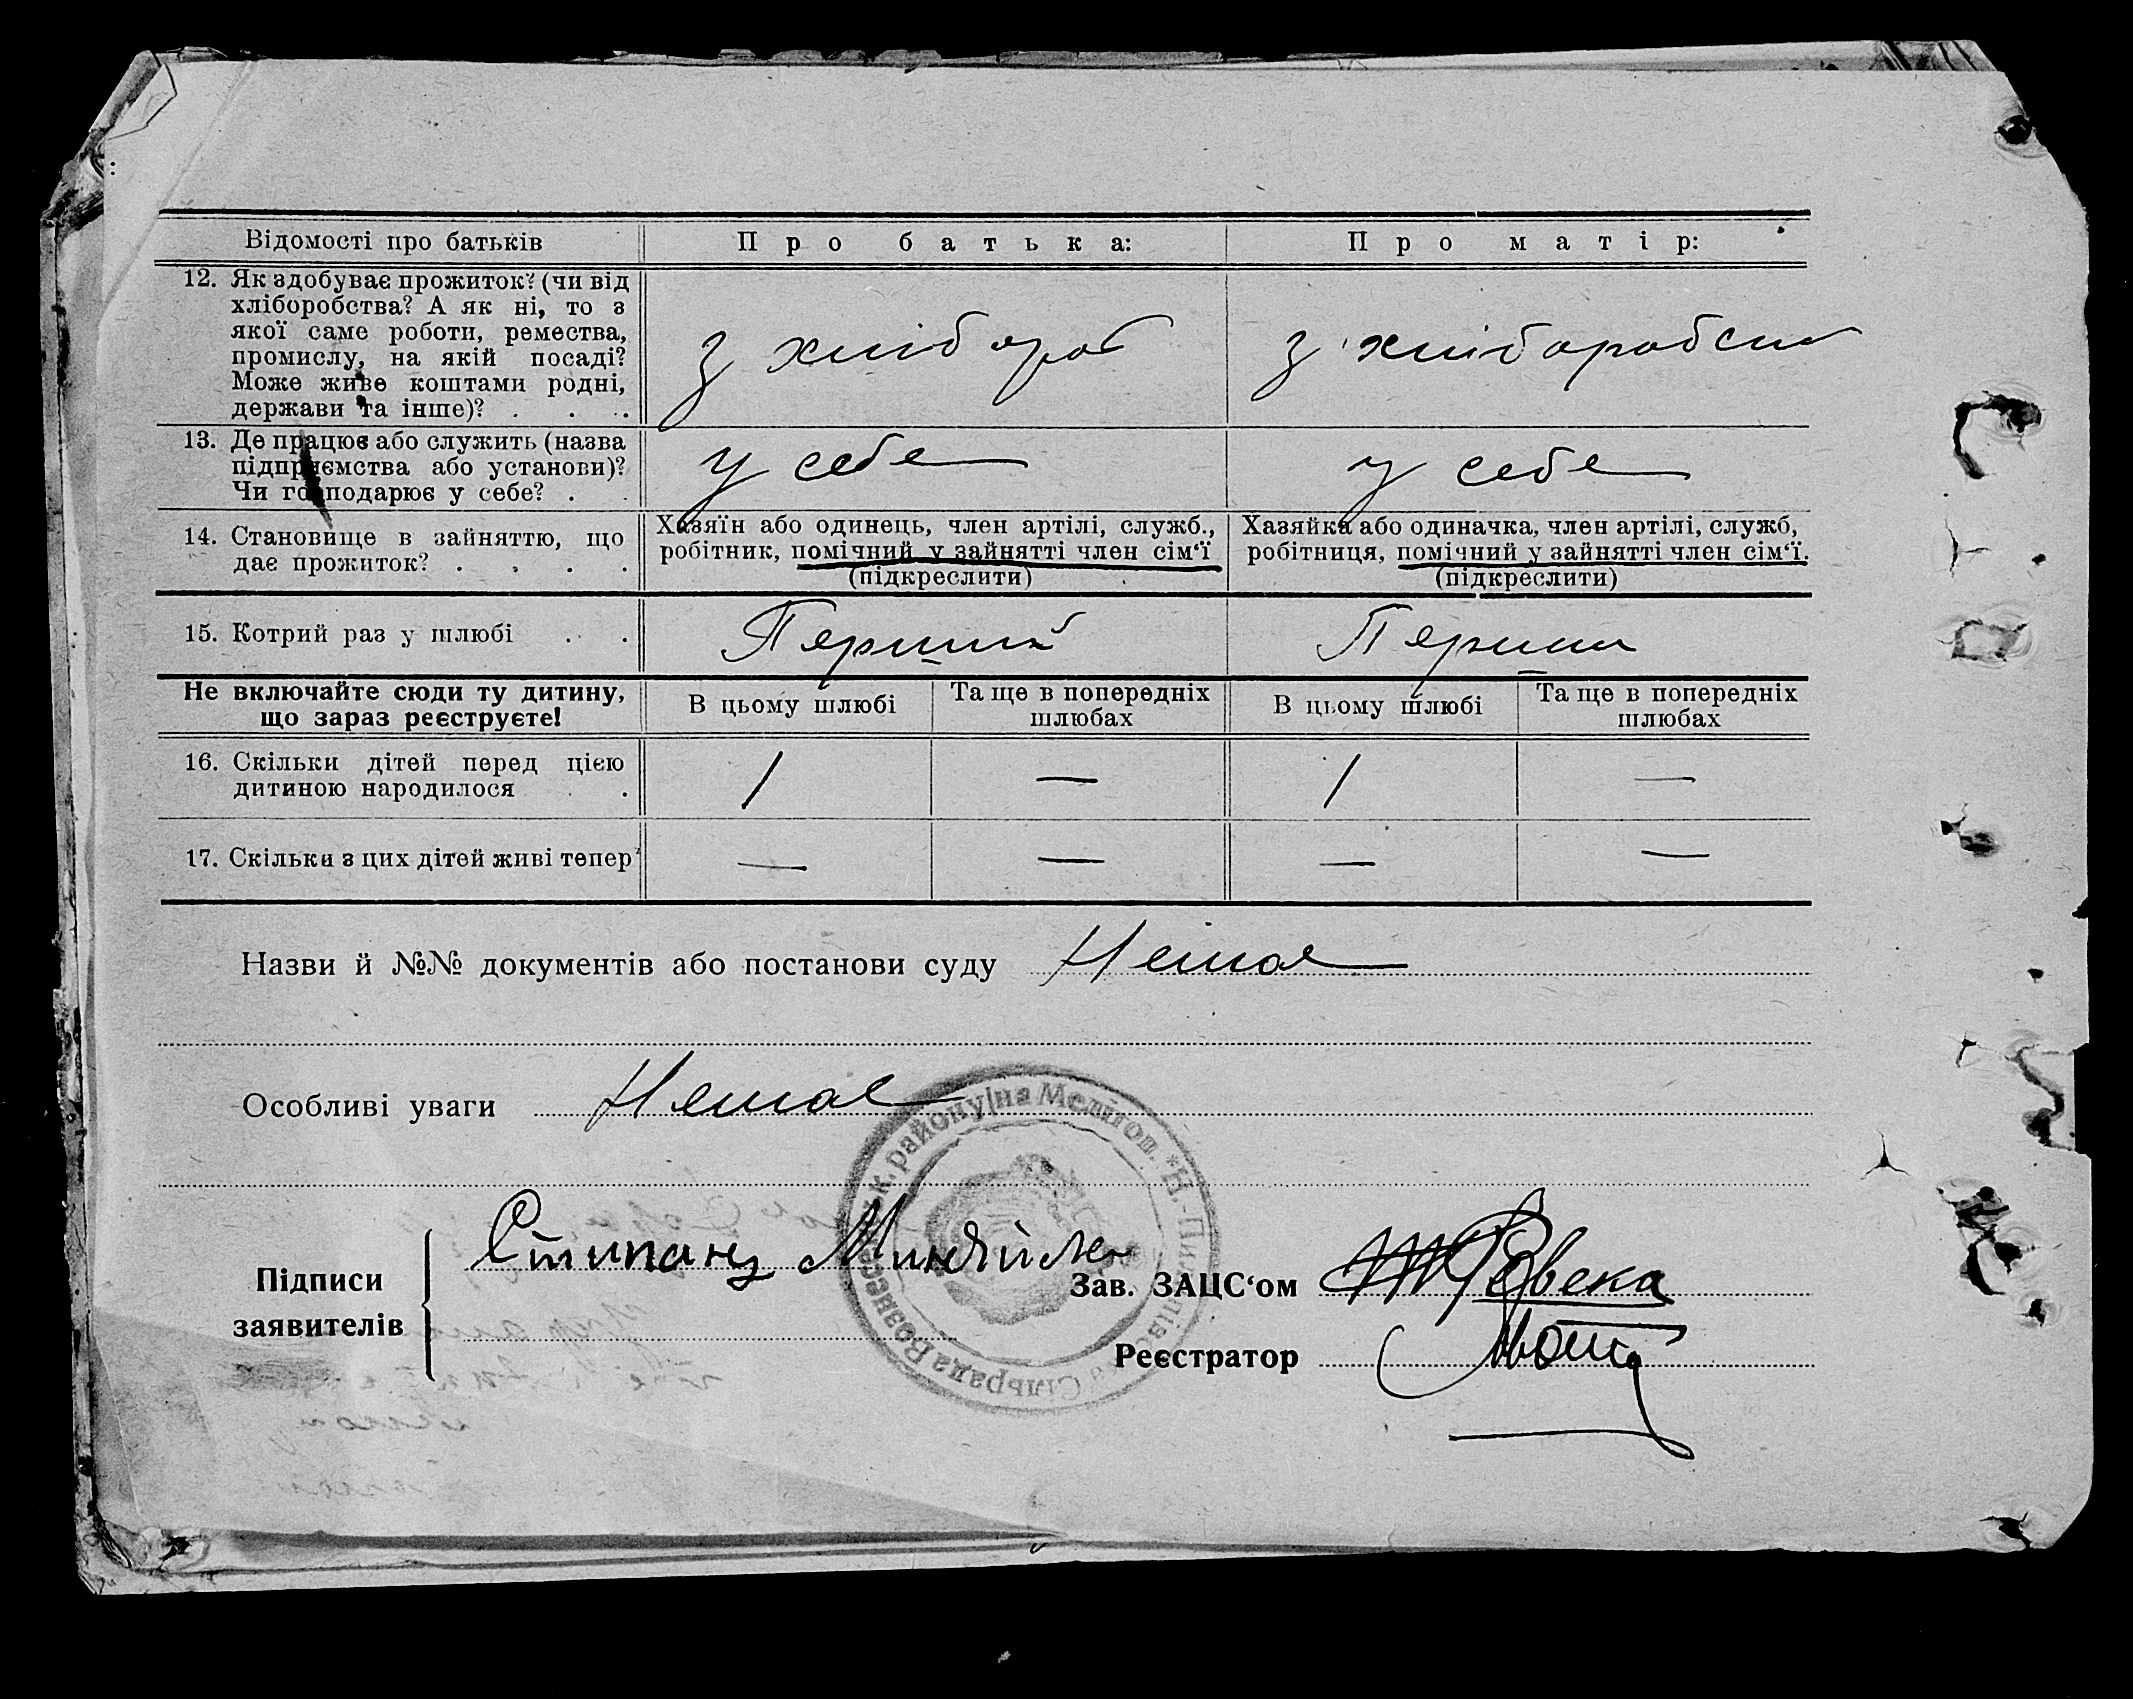 Відомості про батьків
Про батька:
Про матір:
12. Як здобуває прожиток? (чи від
хліборобства? А як ні, то з
якої саме роботи, ремества,
промислу, на якій посаді?
Може живе коштами родні,
держави та інше)? . . .
з хлібороб
з хліборобст
13. Де працює або служить (назва
підприємства або установи)?
Чи господарює у себе? . .
у себе
у себе
14. Становище в зайняттю, що
дає прожиток? . . . .
Хазяїн або одинець, член артілі, служб.,
робітник, помічний у зайнятті член сім'ї
(підкреслити)
Хазяйка або одиначка, член артілі, служб,
робітниця, помічний у зайнятті член сім'ї.
(підкреслити)
15. Котрий раз у шлюбі . .
Перший
Перший
Не включайте сюди ту дитину,
що зараз реєструєте!
В цьому шлюбі
Та ще в попередніх
шлюбах
В цьому шлюбі
Та ще в попередніх
шлюбах
16. Скільки дітей перед цією
дитиною народилося . .
1
—
1
—
17. Скільки з цих дітей живі тепер?
—
—
—
—
Назви й №№ документів або постанови суду Немає
Особливі уваги Немає
Підписи
заявителів
Зав. ЗАЦС'ом
Реєстратор
Сільрада Вознесенськ. району на Меліто